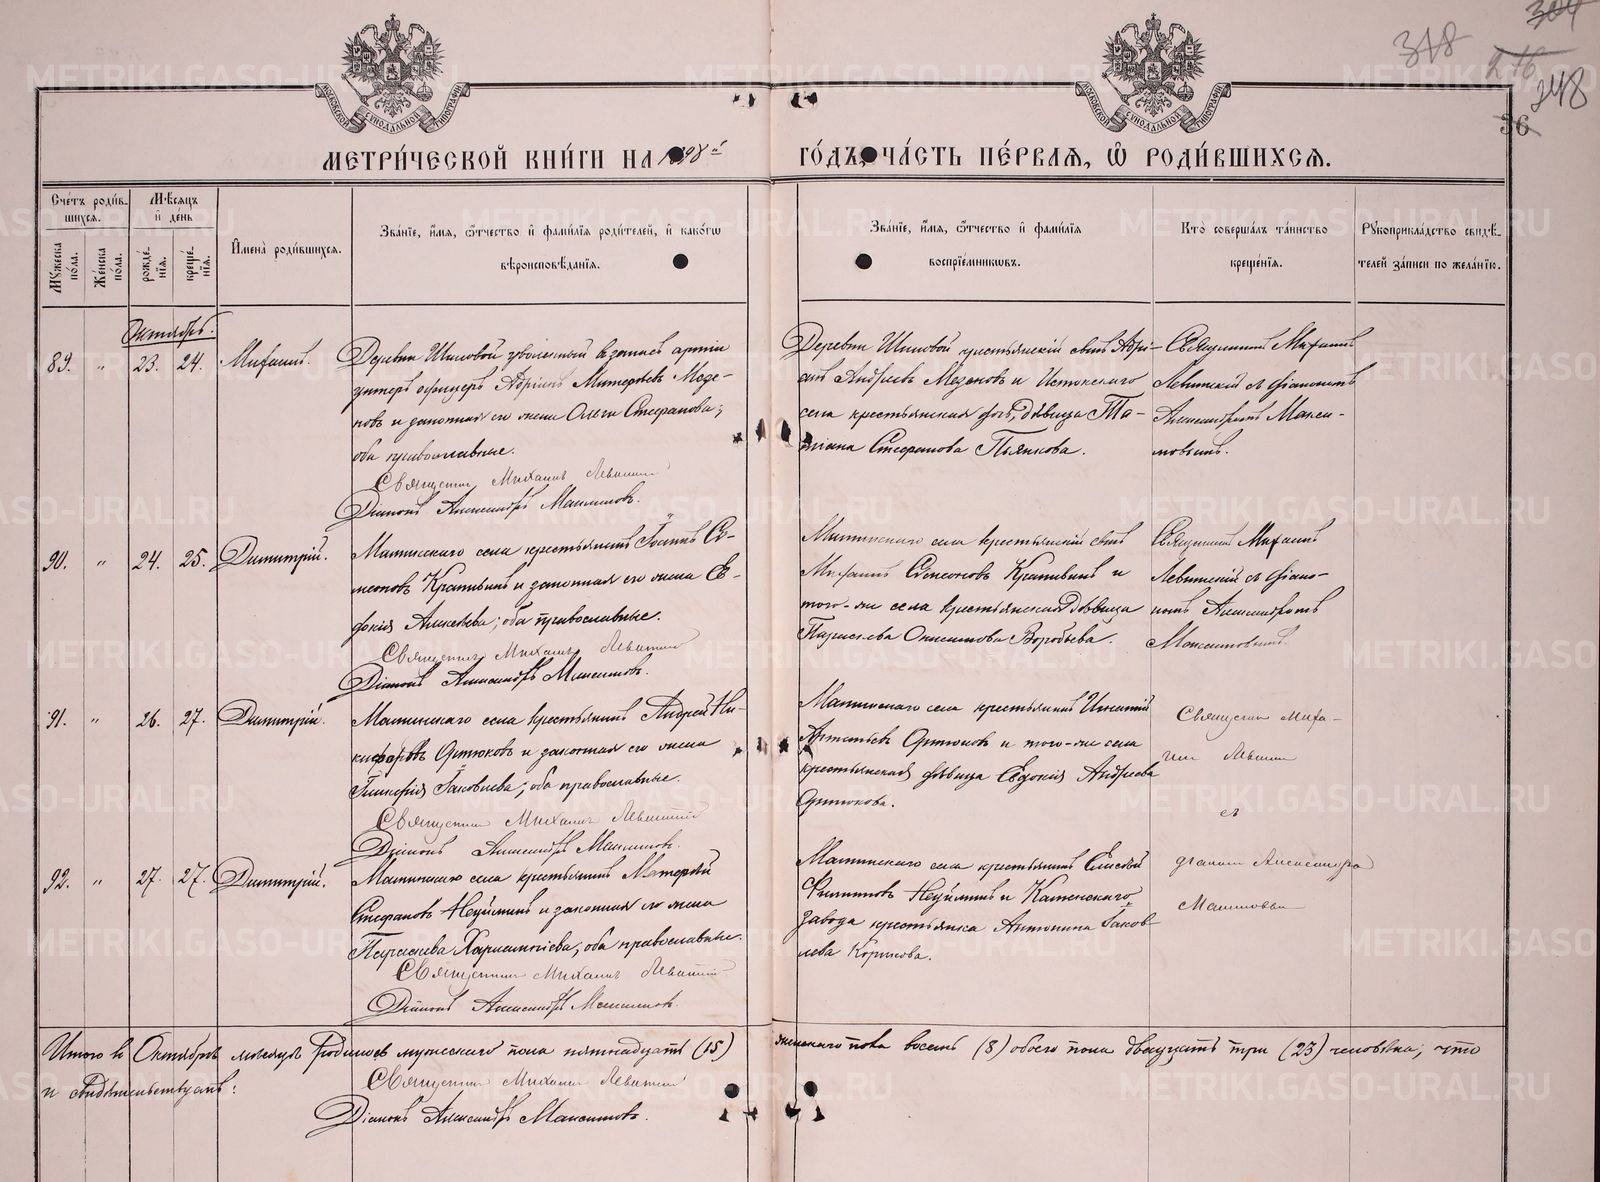 318
304
216
248
36
МЕТРИЧЕСКОЙ КНИГИ НА 1898й ГОДЪ, ЧАСТЬ ПЕРВАЯ, Ѡ РОДИВШИХСЯ.
МОСКОВСКОЙ СѴНОДАЛЬНОЙ ТИПОГРАФІИ
МОСКОВСКОЙ СѴНОДАЛЬНОЙ ТИПОГРАФІИ
Счетъ родившихся.
Мужеска пола.
Женска пола.
Мѣсяцъ и день
рожденія.
крещенія.
Имена родившихся.
Званіе, имя, ѿчество и фамилія родителей, и какогѡ
вѣроисповѣданія.
Званіе, имя, ѿчество и фамилія
воспріемникѡвъ.
Кто совершалъ таинство
крещенія.
Рукоприкладство свидѣтелей записи по желанію.
Октябрь.
89. " 23. 24. Михаилъ.
Деревни Шиловой уволенный въ запасъ арміи
унтеръ офицеръ Адріанъ Матѳеевъ Мезеновъ и законная его жена Ольга Стефанова;
оба православные.
Священникъ Михаилъ Левитскій
Діаконъ Александръ Максимовъ.
Деревни Шиловой крестьянскій сынъ Адріанъ Андреевъ Мезеновъ и Истокскаго
села крестьянская дочь, дѣвица Татіана Стефанова Пьянкова.
Священникъ Михаилъ
Левитскій съ діакономъ
Александромъ Максимовымъ.
90. " 24. 25. Димитрій.
Маминскаго села крестьянинъ Іоаннъ Симеоновъ Крапивинъ и законная его жена Евдокія Алексѣева; оба православные.
Священникъ Михаилъ Левитскій
Діаконъ Александръ Максимовъ.
Маминскаго села крестьянскій сынъ
Михаилъ Симеоновъ Крапивинъ и
того-же села крестьянская дѣвица
Параскева Онисимова Воробьева.
Священникъ Михаилъ
Левитскій съ діакономъ Александромъ
Максимовымъ.
91. " 26. 27. Димитрій.
Маминскаго села крестьянинъ Андрей Никифоровъ Ортюковъ и законная его жена
Гликерія Іаковлева; оба православные.
Священникъ Михаилъ Левитскій
Діаконъ Александръ Максимовъ.
Маминскаго села крестьянинъ Игнатій
Ортюковъ и того-же села
крестьянская дѣвица Евдокія Андреева
Ортюкова.
Священникъ Михаилъ Левитскій
съ
діакономъ Александромъ
Максимовымъ
92. " 27. 27. Димитрій.
Маминскаго села крестьянинъ
Стефановъ Неуйминъ и законная его жена
Параскева Харлампіева; оба православные.
Священникъ Михаилъ Левитскій
Діаконъ Александръ Максимовъ.
Маминскаго села крестьянинъ Елисей
Филипповъ Неуйминъ и Каменскаго
завода крестьянка Антонина Іаковлева Корюкова.
Итого въ Октябрѣ мѣсяцѣ родилось мужескаго пола пятнадцать (15) женскаго пола восемь (8) обоего пола двадцать три (23) человѣка; что
и свидѣтельствуемъ:
Священникъ Михаилъ Левитскій
Діаконъ Александръ Максимовъ.
METRIKI.GASO-URAL.RU